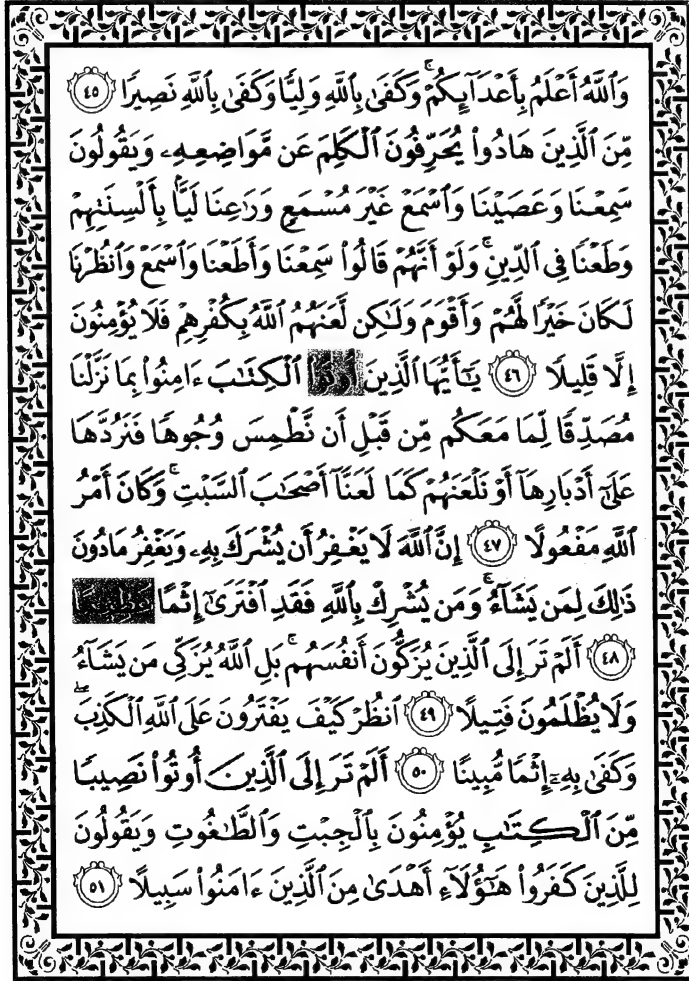 وَٱللَّهُ أَعۡلَمُ بِأَعۡدَآئِكُمۡۚ وَكَفَىٰ بِٱللَّهِ وَلِيّٗا وَكَفَىٰ بِٱللَّهِ نَصِيرٗا ٤٥
مِّنَ ٱلَّذِينَ هَادُواْ يُحَرِّفُونَ ٱلۡكَلِمَ عَن مَّوَاضِعِهِۦ وَيَقُولُونَ
سَمِعۡنَا وَعَصَيۡنَا وَٱسۡمَعۡ غَيۡرَ مُسۡمَعٖ وَرَٰعِنَا لَيَّۢا بِأَلۡسِنَتِهِمۡ
وَطَعۡنٗا فِي ٱلدِّينِۚ وَلَوۡ أَنَّهُمۡ قَالُواْ سَمِعۡنَا وَأَطَعۡنَا وَٱسۡمَعۡ وَٱنظُرۡنَا
لَكَانَ خَيۡرٗا لَّهُمۡ وَأَقۡوَمَ وَلَٰكِن لَّعَنَهُمُ ٱللَّهُ بِكُفۡرِهِمۡ فَلَا يُؤۡمِنُونَ
إِلَّا قَلِيلٗا ٤٦ يَٰٓأَيُّهَا ٱلَّذِينَ ٱلۡكِتَٰبَ ءَامِنُواْ بِمَا نَزَّلۡنَا
مُصَدِّقٗا لِّمَا مَعَكُم مِّن قَبۡلِ أَن نَّطۡمِسَ وُجُوهٗا فَنَرُدَّهَا
عَلَىٰٓ أَدۡبَارِهَآ أَوۡ نَلۡعَنَهُمۡ كَمَا لَعَنَّآ أَصۡحَٰبَ ٱلسَّبۡتِۚ وَكَانَ أَمۡرُ
ٱللَّهِ مَفۡعُولًا ٤٧ إِنَّ ٱللَّهَ لَا يَغۡفِرُ أَن يُشۡرَكَ بِهِۦ وَيَغۡفِرُ مَا دُونَ
ذَٰلِكَ لِمَن يَشَآءُۚ وَمَن يُشۡرِكۡ بِٱللَّهِ فَقَدِ ٱفۡتَرَىٰٓ إِثۡمًا
٤٨ أَلَمۡ تَرَ إِلَى ٱلَّذِينَ يُزَكُّونَ أَنفُسَهُمۚ بَلِ ٱللَّهُ يُزَكِّي مَن يَشَآءُ
وَلَا يُظۡلَمُونَ فَتِيلًا ٤٩ ٱنظُرۡ كَيۡفَ يَفۡتَرُونَ عَلَى ٱللَّهِ ٱلۡكَذِبَۖ
وَكَفَىٰ بِهِۦٓ إِثۡمٗا مُّبِينًا ٥٠ أَلَمۡ تَرَ إِلَى ٱلَّذِينَ أُوتُواْ نَصِيبٗا
مِّنَ ٱلۡكِتَٰبِ يُؤۡمِنُونَ بِٱلۡجِبۡتِ وَٱلطَّٰغُوتِ وَيَقُولُونَ
لِلَّذِينَ كَفَرُواْ هَٰٓؤُلَآءِ أَهۡدَىٰ مِنَ ٱلَّذِينَ ءَامَنُواْ سَبِيلًا ٥١